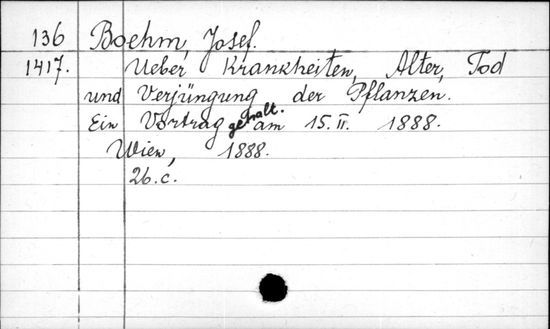 136 Boehm, Josef.
1417. Ueber Krankheiten, Alter, Tod
und Verjüngung der Pflanzen.
Ein Vortrag gehalt. am 15.II. 1888.
Wien, 1888.
26.c.